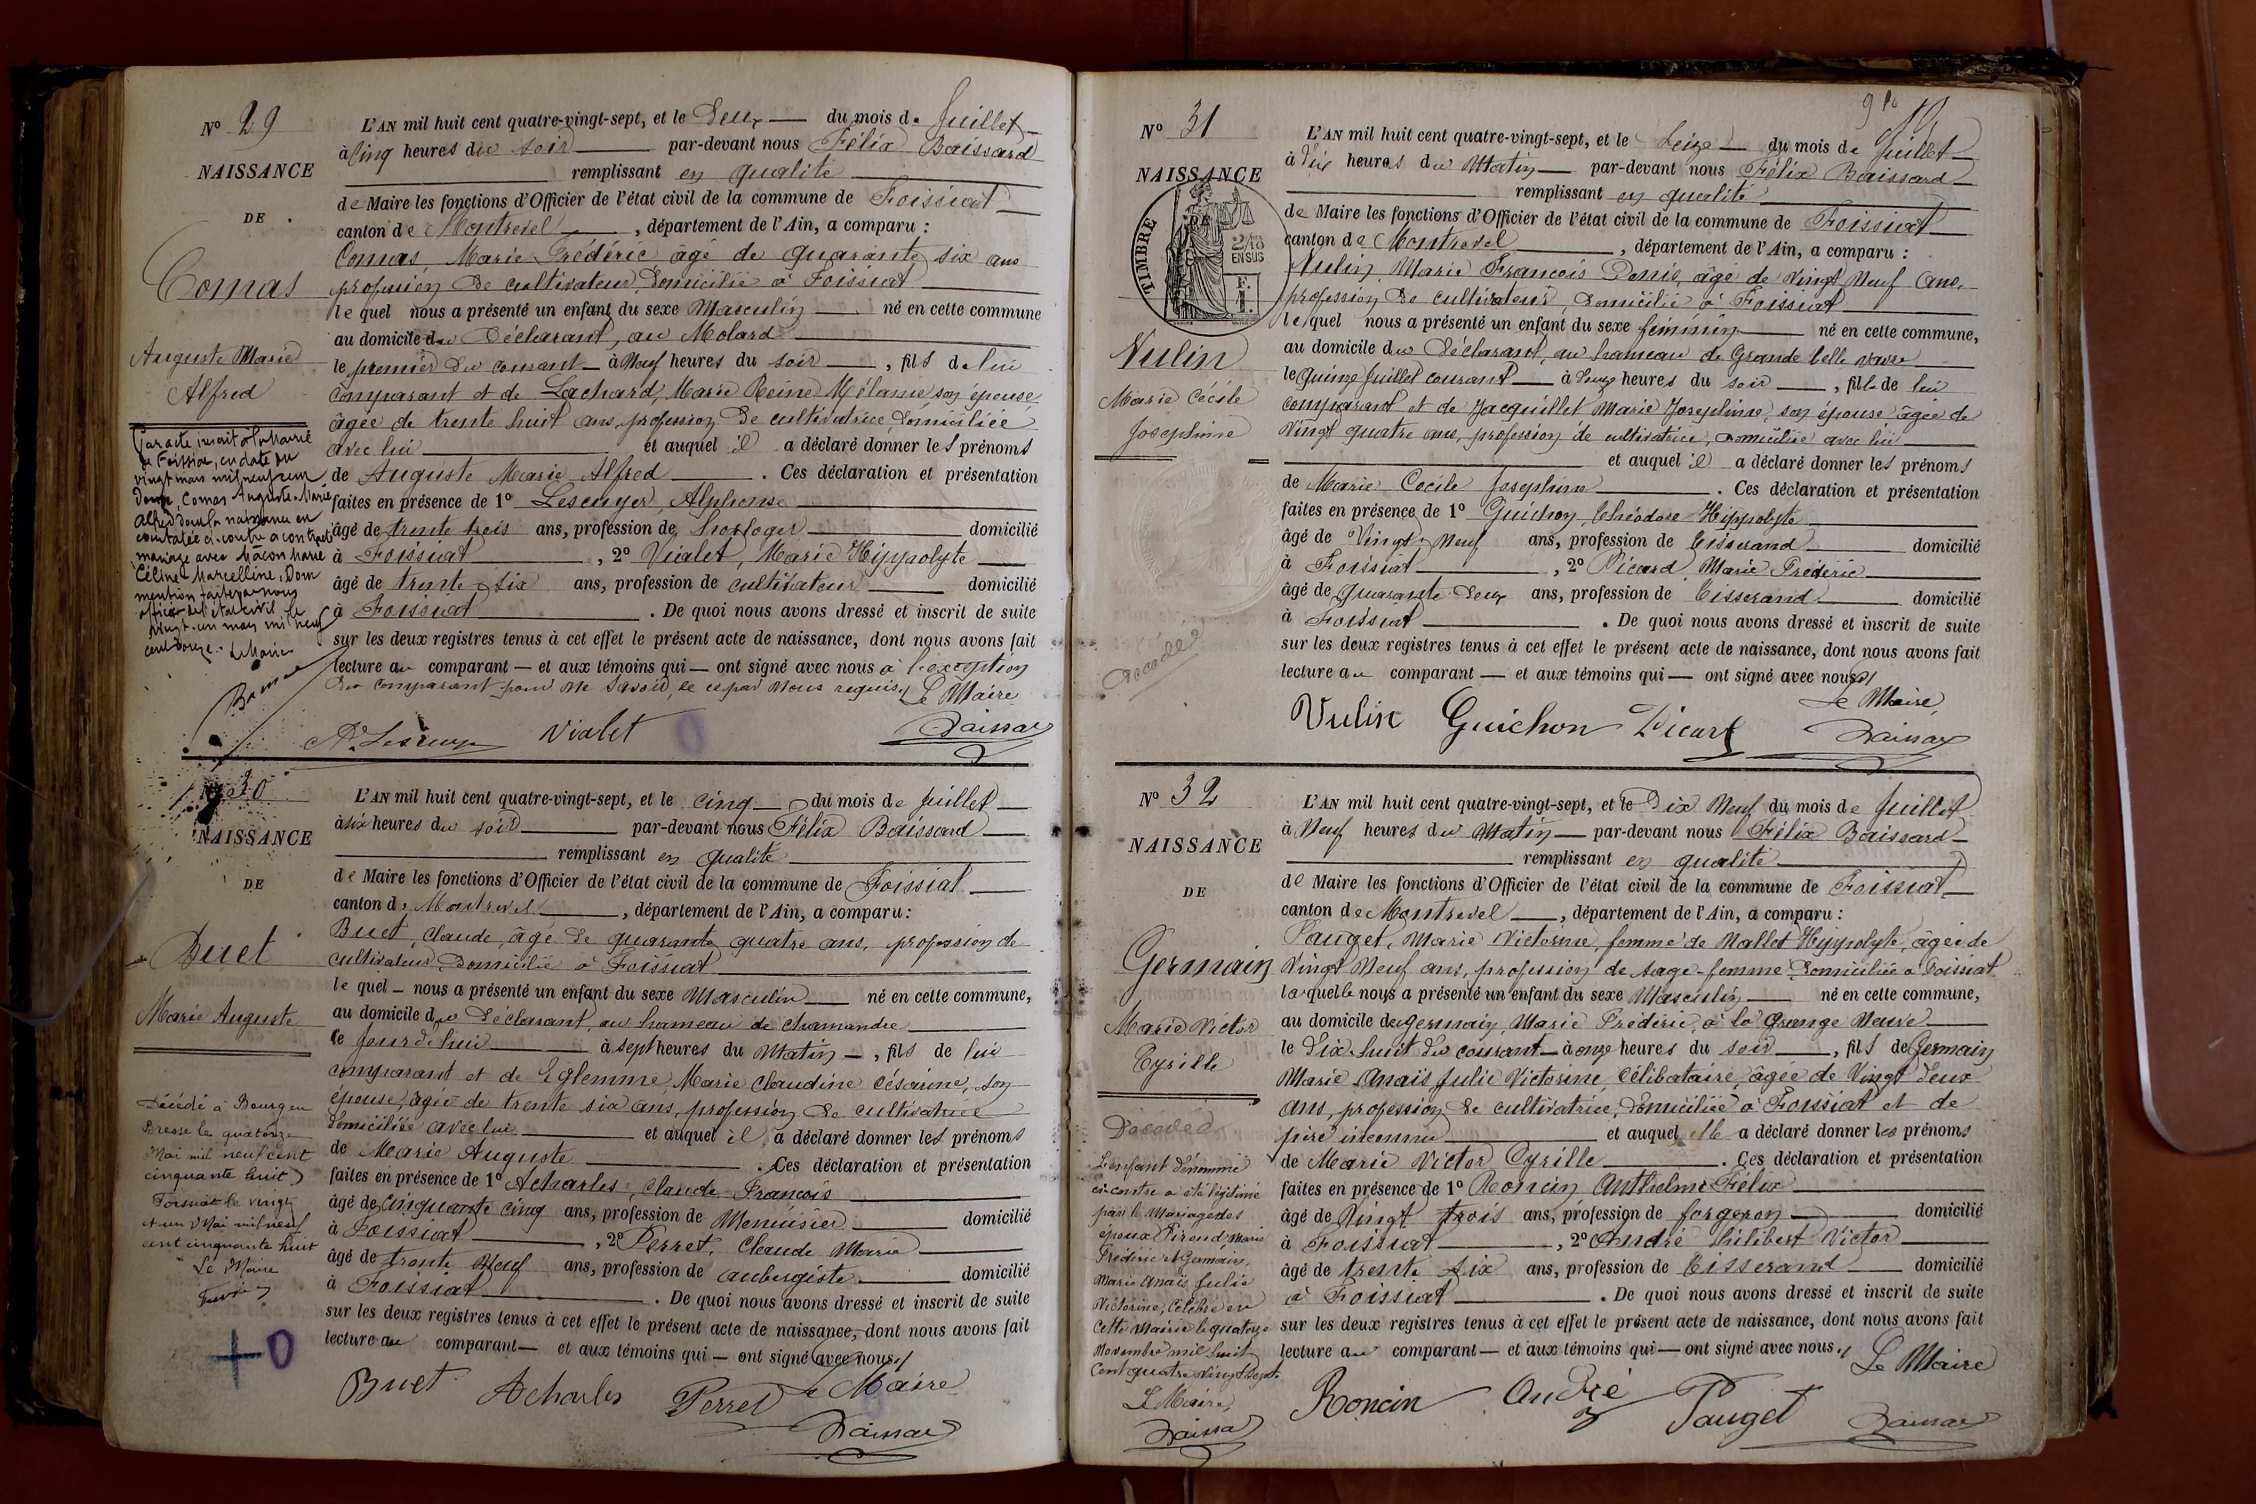 N° 29
NAISSANCE
DE
Comas
Auguste Marie
Alfred
Par acte inscrit à la Mairie
de Foissiat, en date du
vingt mars mil neuf cent
douze, Comas Auguste Marie
Alfred dont la naissance est
constatée ci-contre a contracté
mariage avec Mâcon Marie
Céline Marcelline. Dont
mention faite par nous
officier de l'état civil le
vingt-un mars mil neuf
cent douze. Le Maire
L'AN mil huit cent quatre-vingt-sept, et le Deux du mois de Juillet
à Cinq heures du soir par-devant nous Félix Baissard
remplissant en qualité
de Maire les fonctions d'Officier de l'état civil de la commune de Foissiat
canton de Montrevel, département de l'Ain, a comparu :
Comas, Marie Frédéric âgé de quarante six ans
profession de cultivateur, domicilié à Foissiat
lequel nous a présenté un enfant du sexe Masculin né en cette commune
au domicile du Déclarant, au Molard
le premier du courant à Neuf heures du soir, fils de lui
comparant et de Lachard, Marie Reine Mélanie, son épouse
âgée de trente huit ans, profession de cultivatrice, domiciliée
avec lui et auquel il a déclaré donner les prénoms
de Auguste Marie Alfred. Ces déclaration et présentation
faites en présence de 1° Lescuyer, Alphonse
âgé de trente trois ans, profession de horloger domicilié
à Foissiat, 2° Vialet, Marie Hippolyte
âgé de trente six ans, profession de cultivateur domicilié
à Foissiat. De quoi nous avons dressé et inscrit de suite
sur les deux registres tenus à cet effet le présent acte de naissance, dont nous avons fait
lecture au comparant — et aux témoins qui — ont signé avec nous à l'exception
du comparant pour ne savoir, de ce par nous requis. Le Maire
A. Lescuyer Vialet Baissard
N° 30
NAISSANCE
DE
Buet
Marie Auguste
Décédé à Bourg en
Bresse le quatorze
Mai mil neuf cent
cinquante huit
Foissiat le vingt
et un Mai mil neuf
cent cinquante huit
Le Maire
+ 0
L'AN mil huit cent quatre-vingt-sept, et le cinq du mois de Juillet
à six heures du soir par-devant nous Félix Baissard
remplissant en qualité
de Maire les fonctions d'Officier de l'état civil de la commune de Foissiat
canton de Montrevel, département de l'Ain, a comparu :
Buet, Claude, âgé de quarante quatre ans, profession de
cultivateur, domicilié à Foissiat
lequel — nous a présenté un enfant du sexe Masculin né en cette commune,
au domicile du Déclarant, au hameau de Chamandre
le jourd'hui à sept heures du Matin, fils de lui
comparant et de Eglemme, Marie Claudine Césarine, son
épouse, âgée de trente six ans, profession de cultivatrice
domiciliée avec lui et auquel il a déclaré donner les prénoms
de Marie Auguste. Ces déclaration et présentation
faites en présence de 1° Acharles, Claude François
âgé de Cinquante cinq ans, profession de Menuisier domicilié
à Foissiat, 2° Perret, Claude Marie
âgé de trente Neuf ans, profession de aubergiste domicilié
à Foissiat. De quoi nous avons dressé et inscrit de suite
sur les deux registres tenus à cet effet le présent acte de naissance, dont nous avons fait
lecture au comparant — et aux témoins qui — ont signé avec nous.
Le Maire
Buet Acharles Perret Baissard
N° 31
NAISSANCE
DE
TIMBRE
2/10
EN SUS
F.
1.
Vulin
Marie Cécile
Josephine
Décédée
L'AN mil huit cent quatre-vingt-sept, et le Seize du mois de Juillet
à Dix heures du Matin par-devant nous Félix Baissard
remplissant en qualité
de Maire les fonctions d'Officier de l'état civil de la commune de Foissiat
canton de Montrevel, département de l'Ain, a comparu :
Vulin, Marie François Denis, âgé de Vingt Neuf ans,
profession de cultivateur, domicilié à Foissiat
lequel nous a présenté un enfant du sexe féminin né en cette commune,
au domicile du Déclarant, au hameau de Grande belle vavre
le quinze Juillet courant à Onze heures du soir, fille de lui
comparant et de Jacquillet Marie Josephine, son épouse âgée de
Vingt quatre ans, profession de cultivatrice, domiciliée avec lui
et auquel il a déclaré donner les prénoms
de Marie Cécile Josephine. Ces déclaration et présentation
faites en présence de 1° Guichon, Théodore Hippolyte
âgé de Vingt Neuf ans, profession de Tisserand domicilié
à Foissiat, 2° Picard, Marie Frédéric
âgé de Quarante Deux ans, profession de Tisserand domicilié
à Foissiat. De quoi nous avons dressé et inscrit de suite
sur les deux registres tenus à cet effet le présent acte de naissance, dont nous avons fait
lecture au comparant — et aux témoins qui — ont signé avec nous.
Le Maire,
Vulin Guichon Picard Baissard
N° 32
NAISSANCE
DE
Germain
Marie Victor
Cyrille
Décédé
L'enfant dénommé
ci-contre a été légitimé
par le Mariage des
époux Piroud, Marie
Frédéric et Germain,
Marie Anaïs Julie
Victorine, célébré en
cette Mairie le quatorze
Novembre mil huit
Cent quatre Vingt Sept.
Le Maire,
Baissard
L'AN mil huit cent quatre-vingt-sept, et le Dix Neuf du mois de Juillet
à Neuf heures du Matin par-devant nous Félix Baissard
remplissant en qualité
de Maire les fonctions d'Officier de l'état civil de la commune de Foissiat
canton de Montrevel, département de l'Ain, a comparu :
Pauget, Marie Victorine, femme de Mallet Hippolyte, âgée de
Vingt Neuf ans, profession de sage-femme domiciliée à Foissiat
laquelle nous a présenté un enfant du sexe Masculin né en cette commune,
au domicile de Germain, Marie Frédéric, à la Grange Neuve
le Dix-huit du courant à onze heures du soir, fils de Germain
Marie Anaïs Julie Victorine, Célibataire, âgée de Vingt Deux
ans, profession de cultivatrice, domiciliée à Foissiat et de
père inconnu et auquel elle a déclaré donner les prénoms
de Marie Victor Cyrille. Ces déclaration et présentation
faites en présence de 1° Roncin Anthelme Félix
âgé de Vingt trois ans, profession de forgeron domicilié
à Foissiat, 2° André Philibert Victor
âgé de trente six ans, profession de Tisserand domicilié
à Foissiat. De quoi nous avons dressé et inscrit de suite
sur les deux registres tenus à cet effet le présent acte de naissance, dont nous avons fait
lecture au comparant — et aux témoins qui — ont signé avec nous.
Le Maire
Roncin André Pauget Baissard